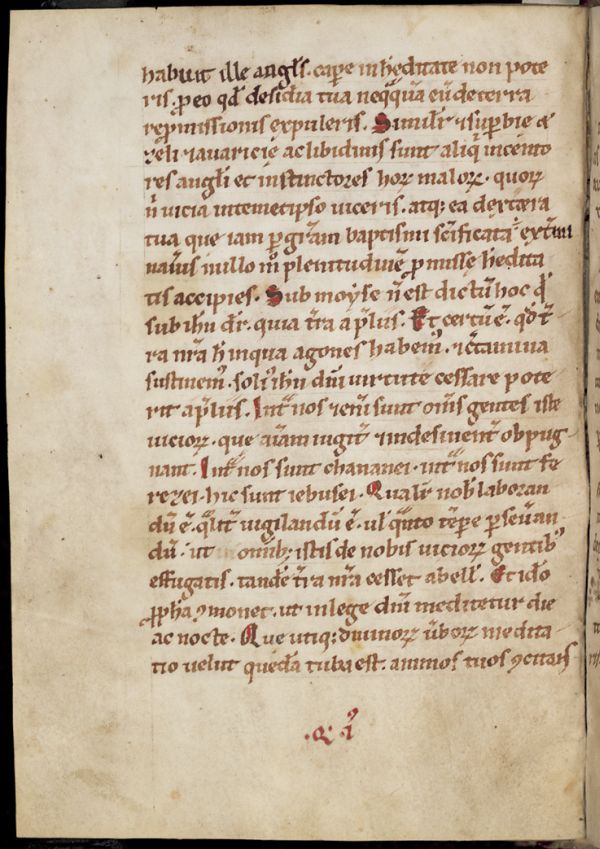 habuit ille angl̄s. cap̄e in h̄editate non pote
ris. ꝓ eo qd̄ desidia tua neq̄q̄uā eū de terra
repromissionis expuleris. Simili⁊ suꝑbie ⁊
zeli ⁊ auaricie ac libidinis sunt aliq̄ incento
res angl̄i et instinctores hoꝝ maloꝝ. quoꝝ
n̄ vicia in temetipso viceris. atq; ea dextera
tua que iam ꝑ gr̄am baptismi sc̄ificata ē
nauis in illo m̊ plenitudinē ꝓmisse h̄edita
tis accipies. Sub moyse n̄ est dictū hoc qd̄
sub ih̄u dr̄. quia t̄ra a p̄liis. Et certū ē. qd̄ t̄
ra nr̄a in qua agones habemꝰ. ⁊ c̄tamina
sustinemꝰ. soliꝰ ih̄u dn̄i virtute cessare pote
rit a p̄liis. Int̄ nos ⁊enī sunt om̄s gentes iste
vicioꝝ. que aīam iugit̄ ⁊ indesinent̄ obpug
nant. Int̄ nos sunt chananei. int̄ nos sunt fe
rezei. hic sunt iebusei. Qualit̄ nob̄ laboran
dū ē. q̄lit̄ vigilandū ē. ul̄ q̄nto tēpe ꝑseuan
dū. ut omib; istis de nobis vicioꝝ gentibꝰ
effugatis. tandē t̄ra nr̄a cesset a bell̄. Et ido
ꝓph̄a ꝯmonet. ut in lege dn̄i meditetur die
ac nocte. Que utiq; diuinoꝝ ūboꝝ medita
tio velut quedā tuba est. animos tuos ꝯcitans